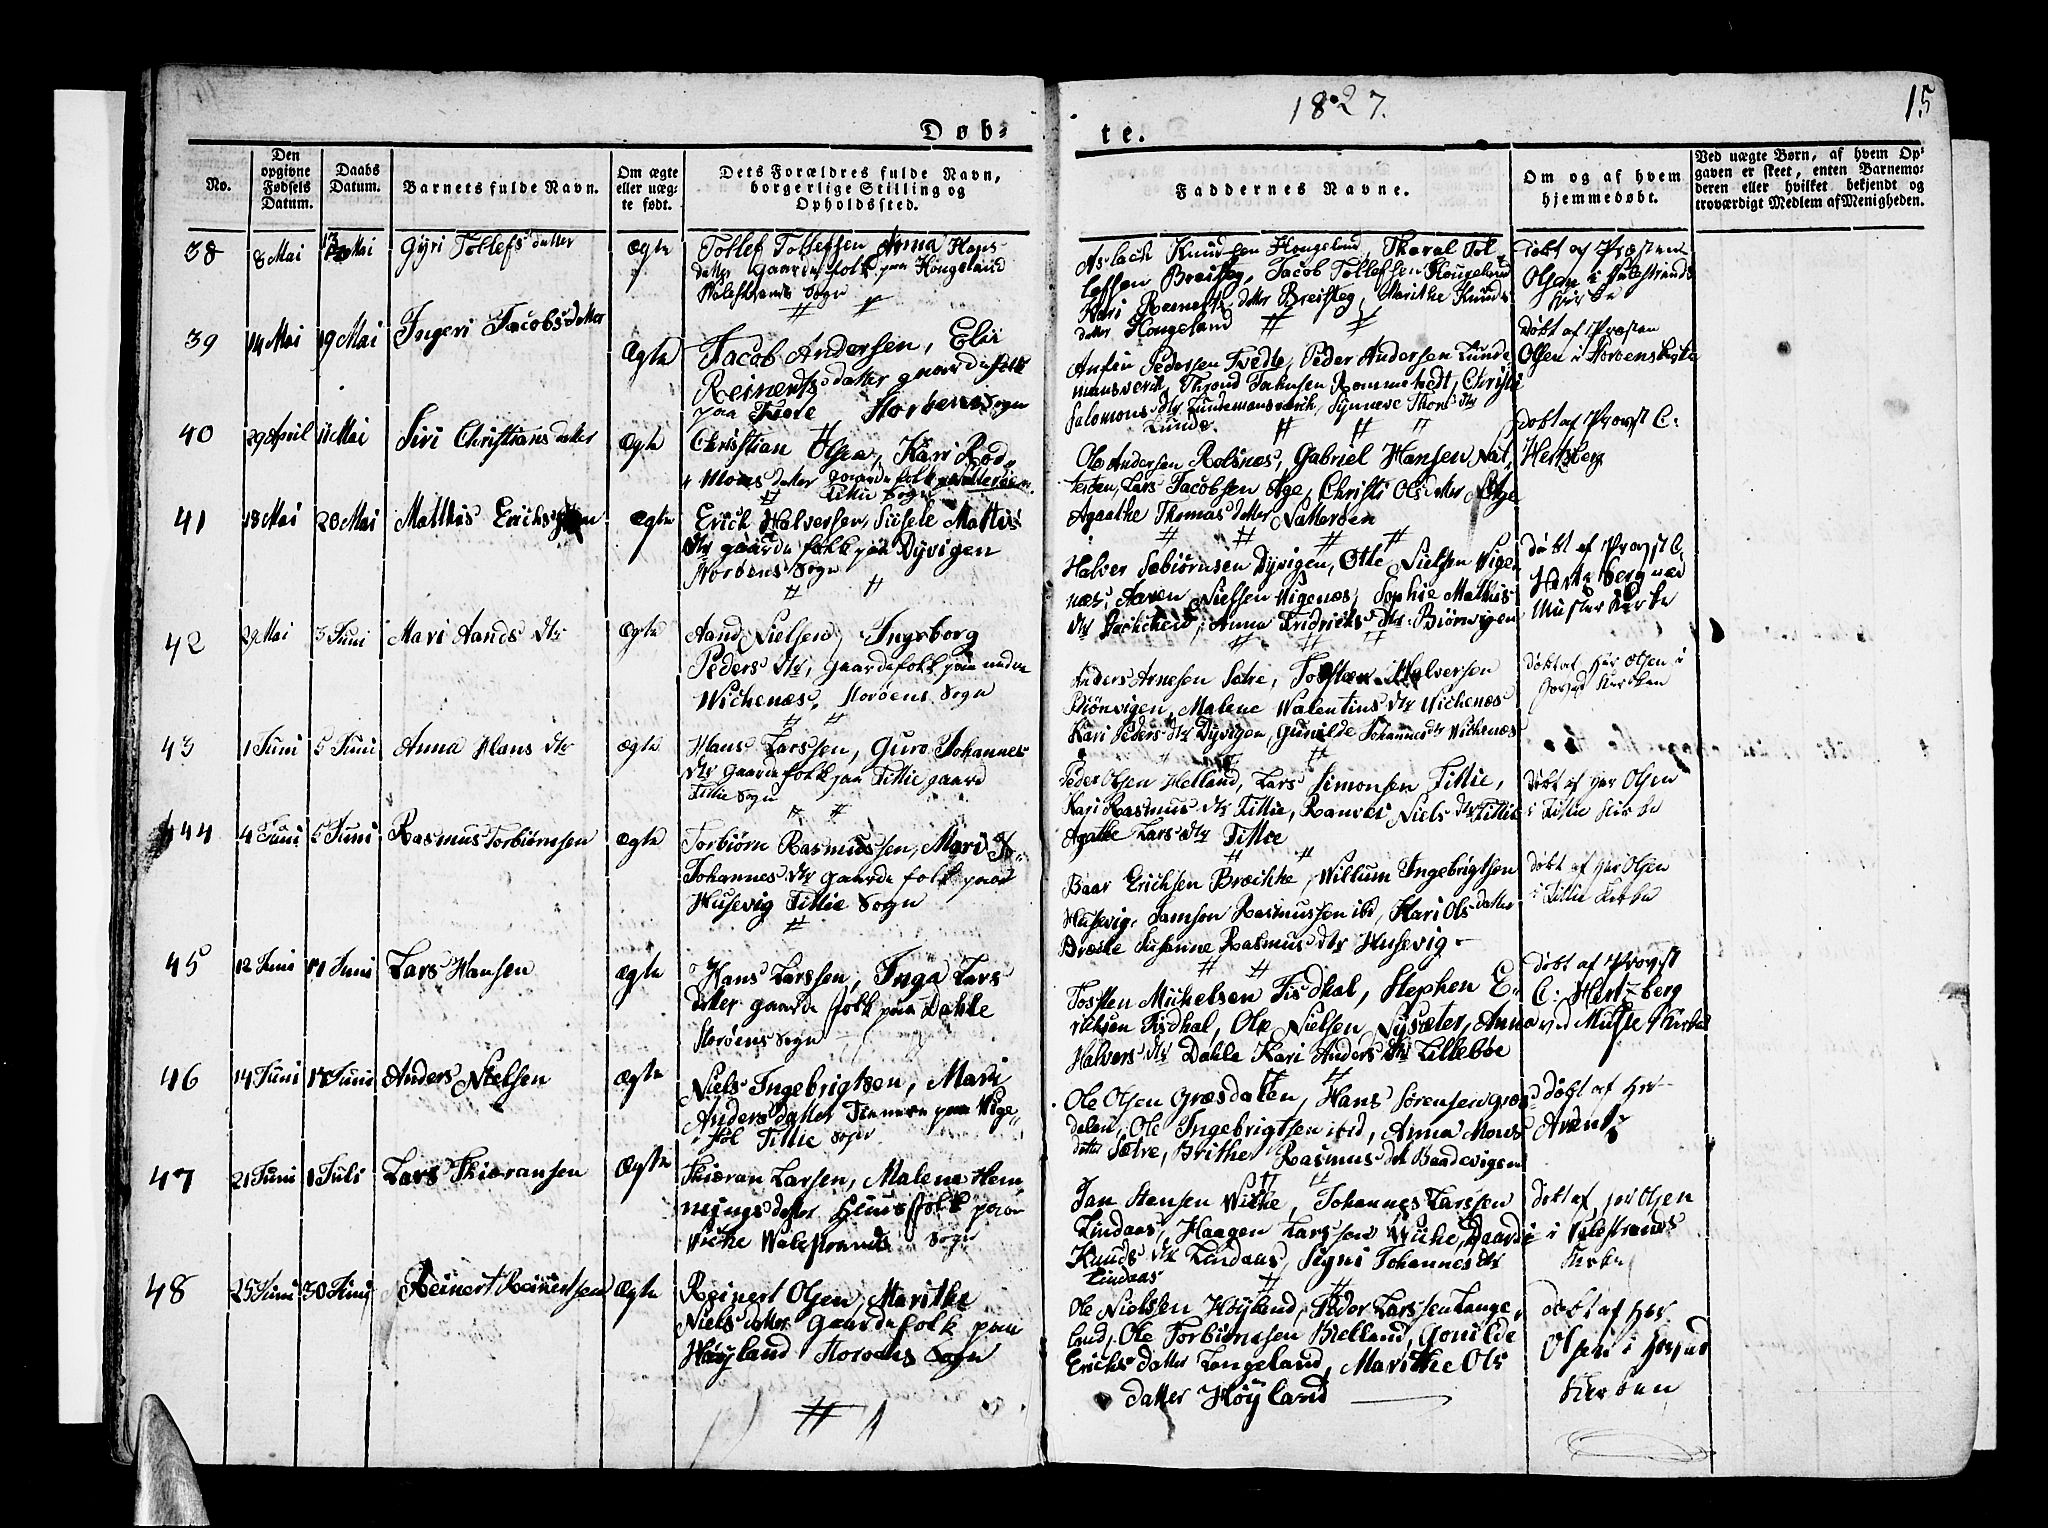 1827.
15
Døb-
te.
No.
Den opgivne Fødsels Datum.
Daabs Datum.
Barnets fulde Navn.
Om ægte eller uægte født.
Dets Forældres fulde Navn, borgerlige Stilling og Opholdssted.
Faddernes Navne.
Om og af hvem hjemmedøbt.
Ved uægte Børn, af hvem Opgaven er skeet, enten Barnemoderen eller hvilket bekjendt og troværdigt Medlem af Menigheden.
38 8 Mai 13 Mai Gyri Tollefs datter Ægte
Tollef Tollefsen Anna Hans
datter gaardefolk paa Hougeland
Walestrands Sogn
Aslach Knudsen Hougeland, Tol
lefsen Breisteg, Jacob Tollefsen Hougeland
Kari datter Breisteg, Marithe Knuds
datter Hougeland
døbt af Præsten
Olsen i Valestrands
Kirke
39 14 Mai 19 Mai Ingeri Jacobs datter Ægte
Jacob Andersen, Eli
Reinerts datter gaardefolk
paa Storøens Sogn
Pedersen Tvedte, Peder Andersen Lunde
mansverk, Johnsen Rommetvedt, Christi
Salomons dtr Lundemansverk, Synneve Thors dtr
Lunde
døbt af Præsten
Olsen i
40 29 April 11 Mai Siri Christians datter Ægte
Christian Olsen, Kari Rod,
Moens datter gaardefolk
Fittie Sogn
Ole Andersen Rolsnæs, Gabriel Hansen Nat,
terøen, Lars Jacobsen Age, Christi Ols datter Age
Agathe Thomas datter Natterøen
døbt af Provst C.
Hertzberg
41 18 Mai 20 Mai Matthis Erichsen Ægte
Erich Halversen, Sidsele Mattis
dtr gaardefolk paa Dyvigen
Storøens Sogn
Halver Dyvigen, Otte Nielsen Vige
næs, Aaren Nielsen Vigenæs, Sophie Matthis
dtr Anna Fridrichs dtr Biørnvigen
døbt af Provst C.
Hertzberg ved
Muster Kirke
42 29 Mai 3 Juni Mari Aands dtr Ægte
Aand Nielsen, Ingeborg
Peders dtr, gaardefolk paa nedre
Wichenæs, Storøens Sogn
Anders Arnesen Sætre, Halversen
Biønvigen, Malene Walentins dtr Wichenæs
Kari Peders dtr Dyvigen, Gunilde Johannes dtr Wichenæs
døbt af Hr Olsen i
Kirken
43 1 Juni 5 Juni Anna Hans dtr Ægte
Hans Larssen, Guro Johannes
dtr gaardefolk paa Fittie gaard
Fittie Sogn
Peder Olsen Helland, Lars Simonsen Fittie,
Kari Rasmus dtr Fittie, Ranvei Niels dtr Fittie
Agathe Lars dtr Fittie
døbt af Her Olsen
i Fittie Kirke
44 4 Juni 5 Juni Rasmus Torbiørnsen Ægte
Torbiørn Rasmussen, Mari
Johannes dtr gaardefolk paa
Husevig Fittie Sogn
Baar Erichsen Bræchke, Willum Ingebrigtsen
Husevig, Samson Rasmussen ibd, Kari Ols datter
Bræcke Susanne Rasmus dtr Husevig
døbt af Her Olsen
i Fittie Kirke
45 12 Juni 17 Juni Lars Hansen Ægte
Hans Larssen, Inga Lars
datter gaardefolk paa Dahle
Storøens Sogn
Tosten Michelsen Fisdhal, Stephen E-
richsen Fisdhal, Ole Nielsen Nysæter, Anna
Halvers dtr Dahle Kari Anders dtr Lillebøe
døbt af Provst
C. Hertzberg
ved Muste Kirke
46 14 Juni 17 Juni Anders Nielsen Ægte
Niels Ingebrigtsen, Mari
Anders datter paa Vige-
Fittie Sogn
Ole Olsen Græsdalen, Hans Sørensen Græs
dalen, Ole Ingebrigtsen ibid, Anna Mons
datter Sætre, Brithe Rasmus dtr Baadevigen
døbt af Hr
Arentz
47 21 Juni 1 Juli Lars Skieransen Ægte
Skieran Larsen, Malena Hem
mings datter Huusfolk paa
Wiche Walestrands Sogn
Jan Stensen Wiche, Johannes Larssen
Lindaas, Haagen Larssen Wiche,
Knuds dtr Lindaas, Signi Johannes dtr
Lindaas
døbt af Her Olsen
i Valestrands
Kirke
48 25 Juni 30 Juni Reinert Reinertsen Ægte
Reinert Olsen, Marithe
Niels datter Gaardefolk paa
Høyland Storøens Sogn
Ole Nielssen Høyland, Peder Larssen Lange
land, Ole Torbiørnsen Bielland, Gonilde
Erichs datter Langeland, Marithe Ols
datter Høyland
døbt af Her
Olsen i Hoved
Kirken